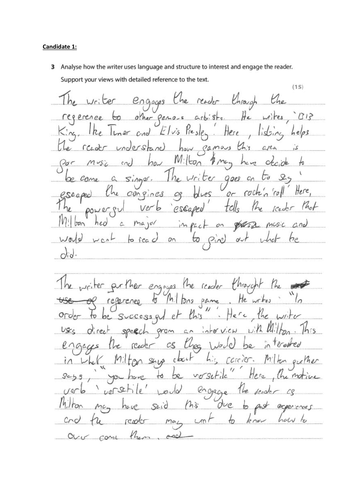 Candidate 1:
3 Analyse how the writer uses language and structure to interest and engage the reader.
Support your views with detailed reference to the text.
(15)
The writer engages the reader through the
reference to other famous artists. He writes, 'BB
King, Ike Turner and Elvis Presley' Here, listing helps
the reader understand how famous this area is
for music and how Milton may have decide to
be come a singer. The writer goes on to say '
escaped the confines of blues or rock'n'roll' Here,
The powerful verb 'escaped' tells the reader that
Milton had a major impact on music and
would want to read on to find out what he
did.
The writer further engages the reader throught the
use of reference to Miltons fame. He writes "In
order to be successful at this" Here, the writer
uses direct speech from an interview with Milton. This
engages the reader as they would be interested
in what Milton says about his carrier. Milton further
says, "you have to be versetile" Here, the motive
verb 'versetile' would engage the reader as
Milton may have said this due to past experences
and the reader may want to know how to
over come them. and